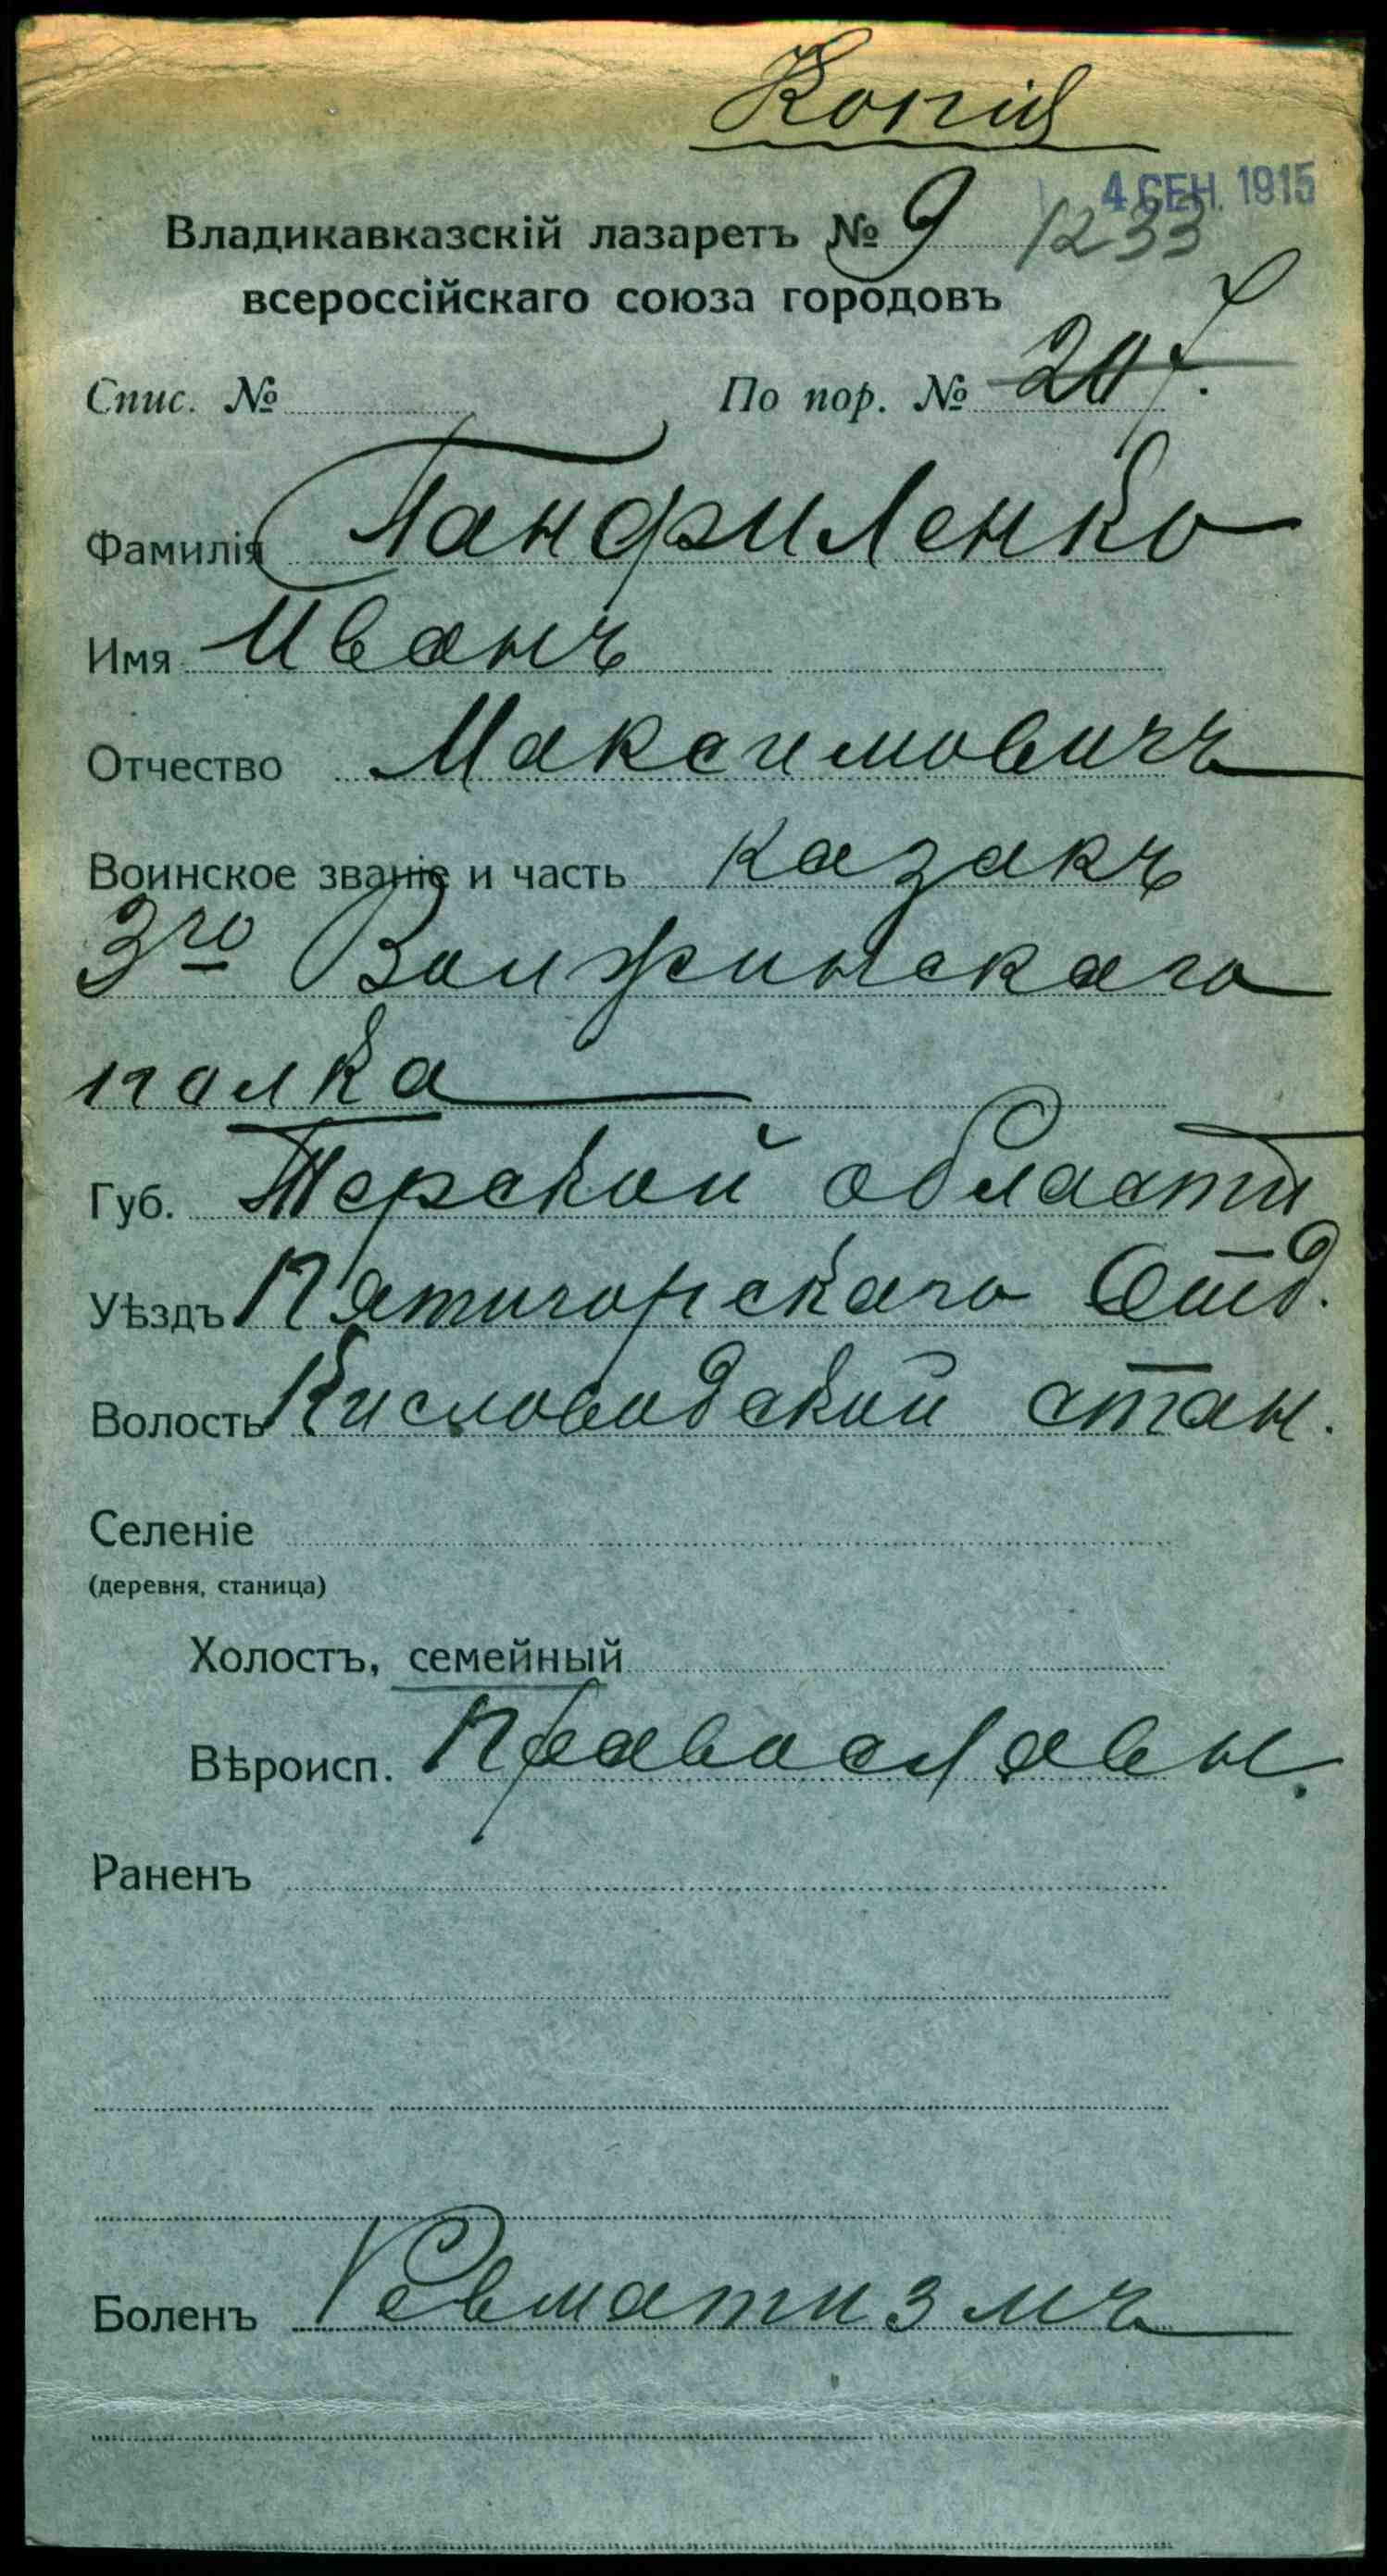 Копія
4 СЕН. 1915
Владикавказскій лазаретъ № 9 1233
всероссійскаго союза городовъ
Спис. № По пор. №
Фамилія Панфиленко
Имя Иванъ
Отчество Максимовичъ
Воинское званіе и часть казакъ
3го Волжинскаго
полка
Губ. Терской области
Уѣздъ Пятигорскаго Отд.
Волость Кисловодской стан.
Селеніе
(деревня, станица)
Холостъ, семейный
Вѣроисп. Православн.
Раненъ
Боленъ Ревматизмъ